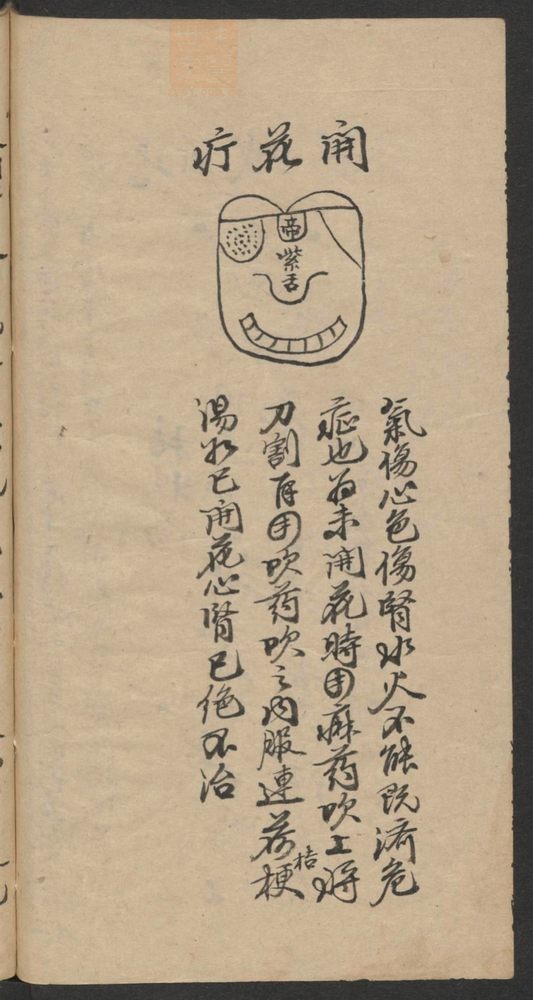 開花疔
帝
紫舌
氣傷心色傷腎水火不能既済危
症也若未開花時用麻药吹上將
刀割存用吹药吹之内服連荷桔梗
湯如已開花心腎已绝不治